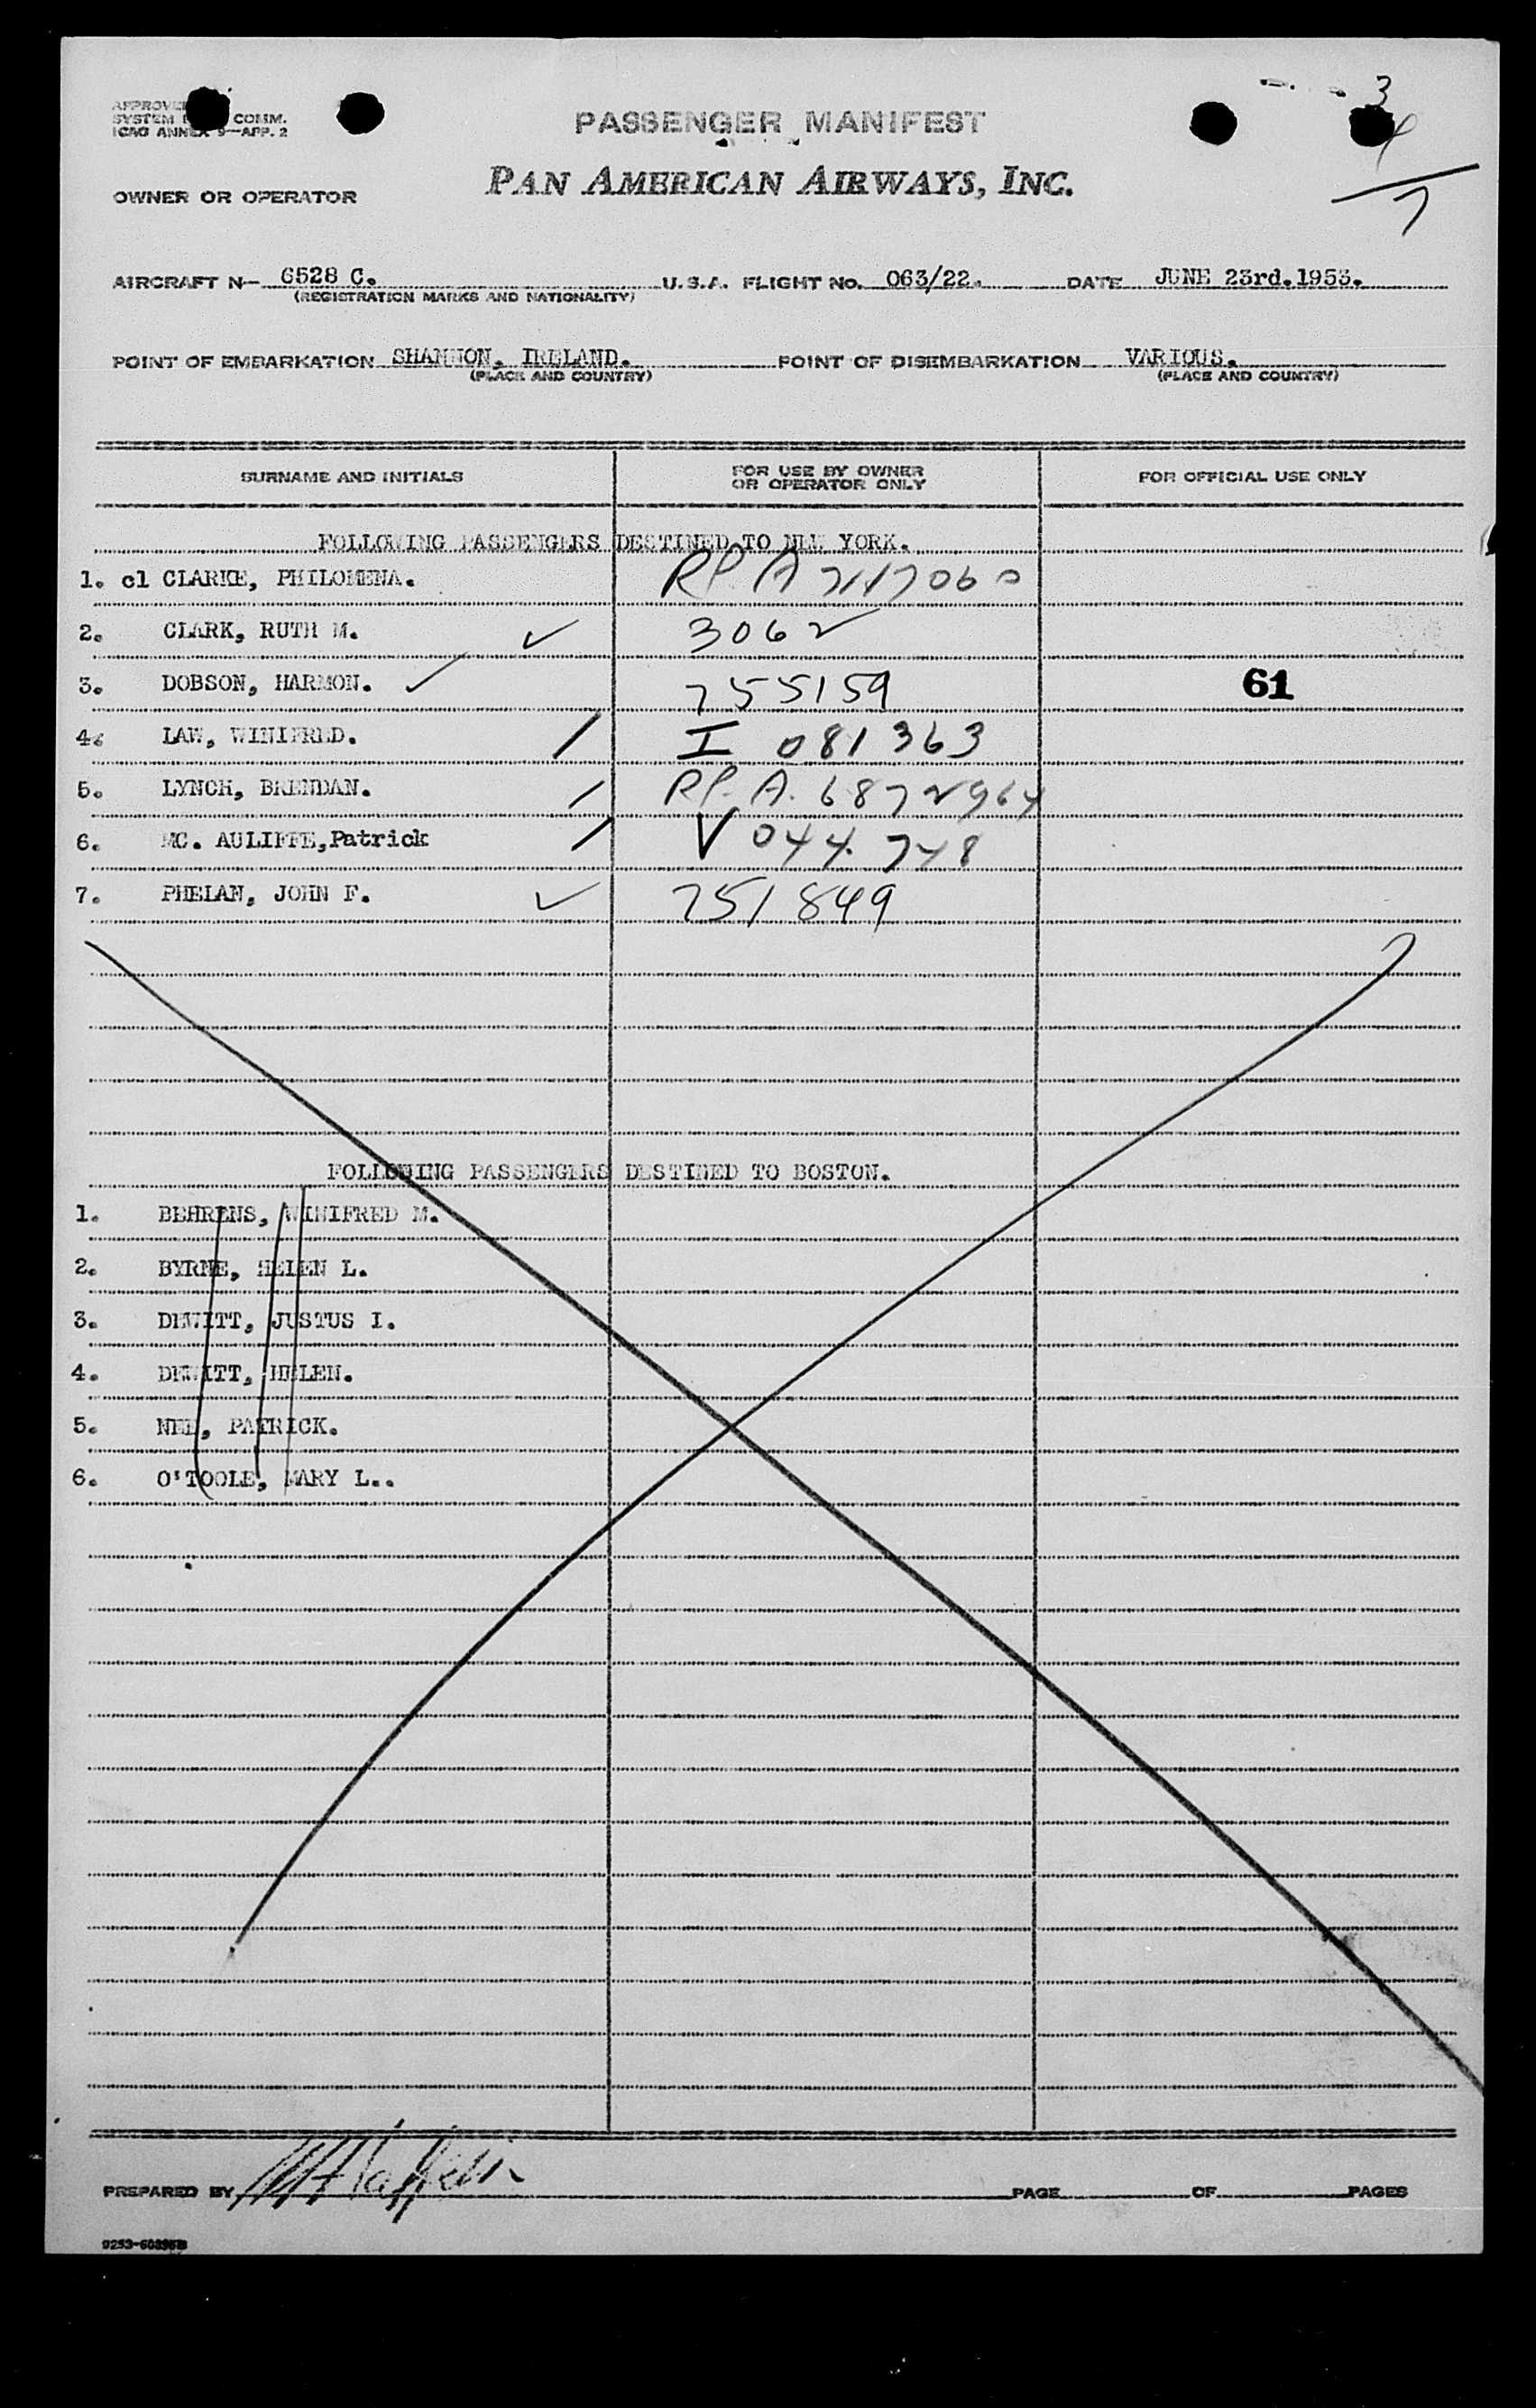 APPROVED
SYSTEM COMM.
ICAO ANNEX 9—APP. 2
3
4
7
PASSENGER MANIFEST
OWNER OR OPERATOR PAN AMERICAN AIRWAYS, INC.
AIRCRAFT N— 6528 C. U.S.A. FLIGHT NO. 063/22. DATE JUNE 23rd.1953.
(REGISTRATION MARKS AND NATIONALITY)
POINT OF EMBARKATION SHANNON, IRELAND. POINT OF DISEMBARKATION VARIOUS.
(PLACE AND COUNTRY) (PLACE AND COUNTRY)
SURNAME AND INITIALS FOR USE BY OWNER OR OPERATOR ONLY FOR OFFICIAL USE ONLY
FOLLOWING PASSENGERS DESTINED TO NEW YORK.
1. cl CLARKE, PHILOMENA. RP. A
2. CLARK, RUTH M. ✓ 3062
3. DOBSON, HARMON. ✓ 755159 61
4. LAW, WINIFRED. / I 081363
5. LYNCH, BRENDAN. / RP. A. 6872964
6. MC. AULIFFE,Patrick / V 044.748
7. PHELAN, JOHN F. ✓ 751849
FOLLOWING PASSENGERS DESTINED TO BOSTON.
1. BEHRENS, WINIFRED M.
2. BYRNE, HELEN L.
3. DEWITT, JUSTUS I.
4. DEWITT, HELEN.
5. NEE, PATRICK.
6. O'TOOLE, MARY L..
PREPARED BY PAGE OF PAGES